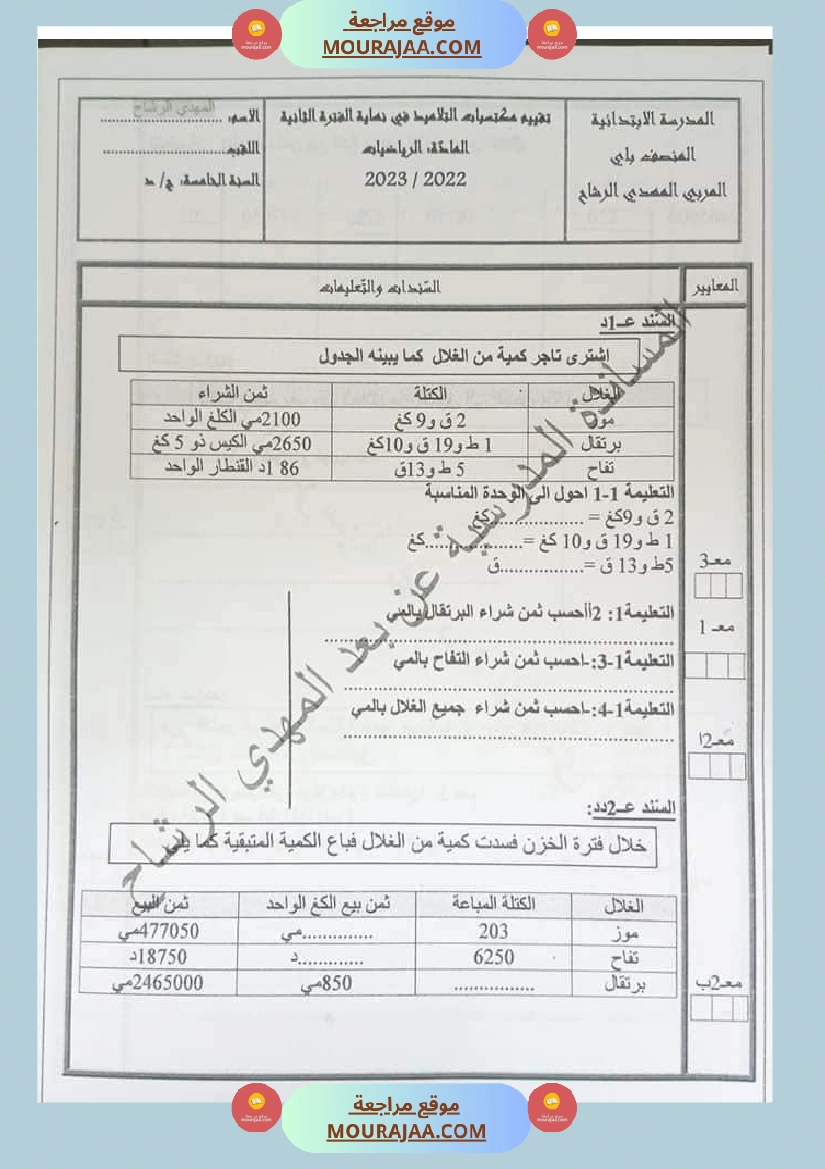 موقع مراجعة
MOURAJAA.COM
المدرسة الابتدائية
المنصف باي
المربي المهدي الرشاح
تقييم مكتسبات التلاميذ في نهاية الفترة الثانية
المادة: الرياضيات
2022 / 2023
المهدي الرشاح
الاسم: ..............................
اللقب..............................
السنة الخامسة: ج/ د
المعايير
السندات والتعليمات
السند عـ1د
اشترى تاجر كمية من الغلال كما يبينه الجدول
الغلال الكتلة ثمن الشراء
موز 2 ق و9 كغ 2100مي الكلغ الواحد
برتقال 1 ط و19 ق و10كغ 2650مي الكيس ذو 5 كغ
تفاح 5 ط و13ق 86 1د القنطار الواحد
التعليمة 1-1 احول الى الوحدة المناسبة
2 ق و9كغ = ....................كغ
1 ط و19 ق و10 كغ =....................كغ
5ط و13 ق =....................ق
معـ3
التعليمة1: 2أاحسب ثمن شراء البرتقال بالمي
معـ 1
................................................
التعليمة1-3:-احسب ثمن شراء التفاح بالمي
................................................
التعليمة1-4:-احسب ثمن شراء جميع الغلال بالمي
................................................
معـ2ا
السند عـ2دد:
خلال فترة الخزن فسدت كمية من الغلال فباع الكمية المتبقية كما يلي
الغلال الكتلة المباعة ثمن بيع الكغ الواحد ثمن البيع
موز 203 ..............مي 477050مي
تفاح 6250 .............د 18750د
برتقال ................ 850مي 2465000مي
معـ2ب
المساندة المدرسية عن بعد المهدي الرشاح
موقع مراجعة
MOURAJAA.COM